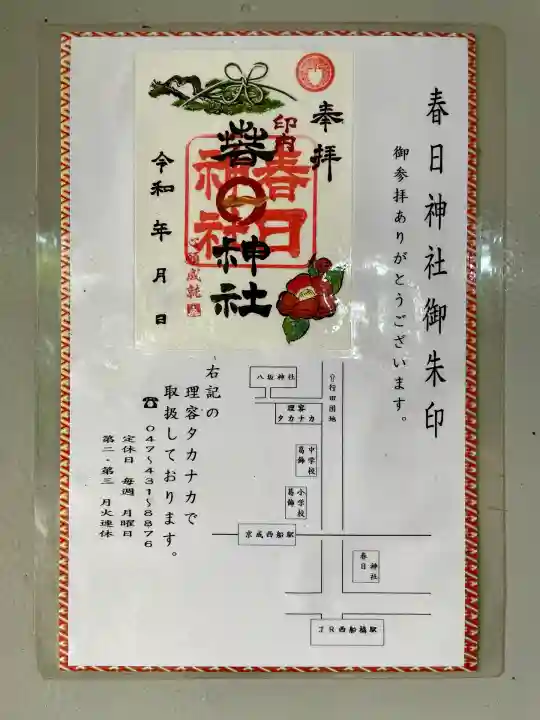 春日神社御朱印
御参拝ありがとうございます。
奉拝
印内
春日神社
春日神社
心願成就
令和 年 月 日
右記の
理容タカナカで
取扱しております。
☎047~431~8876
定休日 毎週 月曜日
第二・第三 月火連休
八坂神社
行田団地
理容
タカナカ
葛飾
中学校
葛飾
小学校
京成西船駅
春日
神社
JR西船橋駅